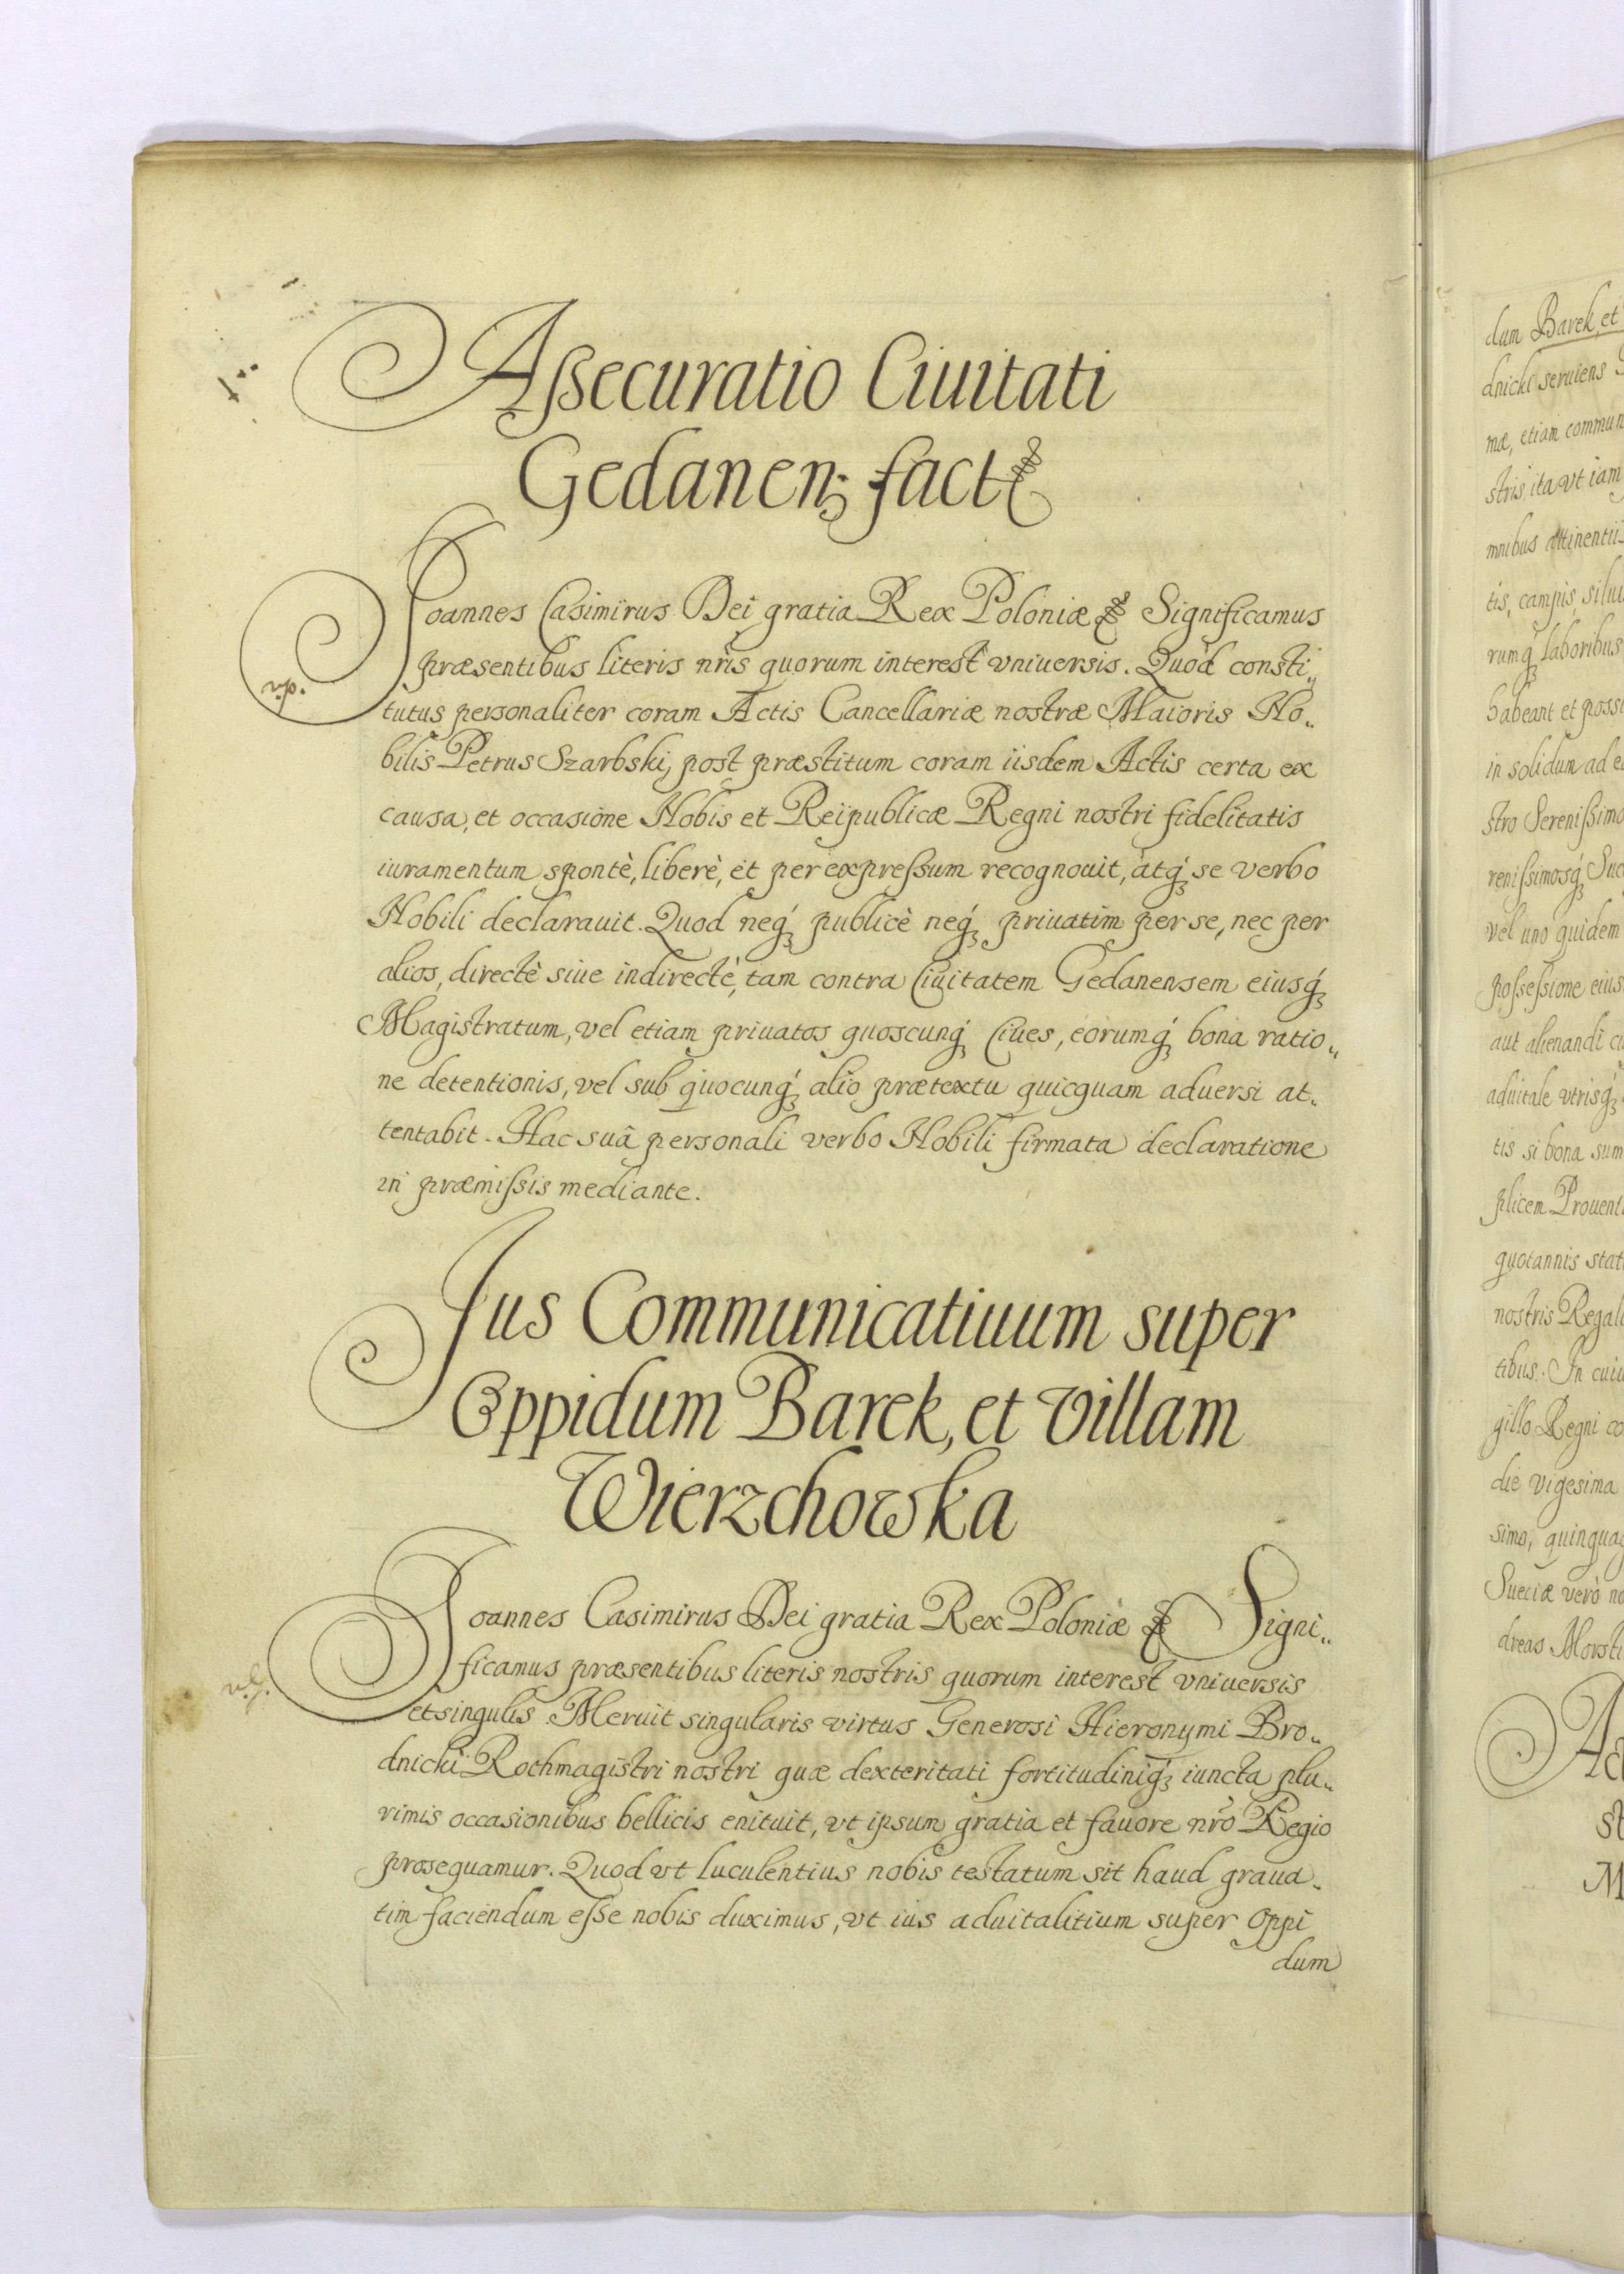 Assecuratio Ciuitati
Gedanen: fact
Joannes Casimirus Dei gratia Rex Poloniæ &c Significamus
præsentibus literis nr̃is quorum interest vniuersis. Quod consti„
v.p.
tutus personaliter coram Actis Cancellariæ nostræ Maioris No„
bilis Petrus Szarbski, post præstitum coram iisdem Actis certa ex
causa, et occasione Nobis et Reipublicæ Regni nostri fidelitatis
iuramentum spontè, liberè, et per expressum recognouit, atq́ꝫ se verbo
Nobili declarauit. Quod neq́ꝫ publicè neq́ꝫ priuatim per se, nec per
alios, directè siue indirectè, tam contra Ciuitatem Gedanensem eiusq́ꝫ
Magistratum, vel etiam priuatos quoscunq́ꝫ Ciues, eorumq́ꝫ bona ratio„
ne detentionis, vel sub quocunq́ꝫ alio prætextu quicquam aduersi at„
tentabit. Hac suâ personali verbo Nobili firmata declaratione
in præmissis mediante.
Jus Communicatiuum super
Oppidum Barek, et Villam
Wierzchowska
Joannes Casimirus Dei gratia Rex Poloniæ &c Signi„
ficamus præsentibus literis nostris quorum interest vniuersis
et singulis. Meruit singularis virtus Generosi Hieronymi Bro„
dnicki Rothmagistri nostri quæ dexteritati fortitudiniq́ꝫ iuncta plu„
rimis occasionibus bellicis enituit, vt ipsum gratia et fauore nr̃o Regio
prosequamur. Quod vt luculentius nobis testatum sit haud graua„
tim faciendum esse nobis duximus, vt ius aduitalitium super Oppi
dum
dum Barek, et
dnicki seruiens
mæ, etiam commun
stris, ita vt iam
mnibus attinentiis
tis, campis, silui
rumq́ꝫ laboribus
habeant et possi
in solidum ad e
stro Serenissimo
renissimosq́ꝫ Suc
vel uno quidem
possessione eius
aut alienandi cu
aduitale vtrisq́ꝫ
tis si bona sum
plicem Prouent
quotannis stat
nostris Regali
tibus. In cuiu
gillo Regni co
die vigesima
simo, quinquag
Sueciæ verò no
dreas Morsti
Ac
st
M